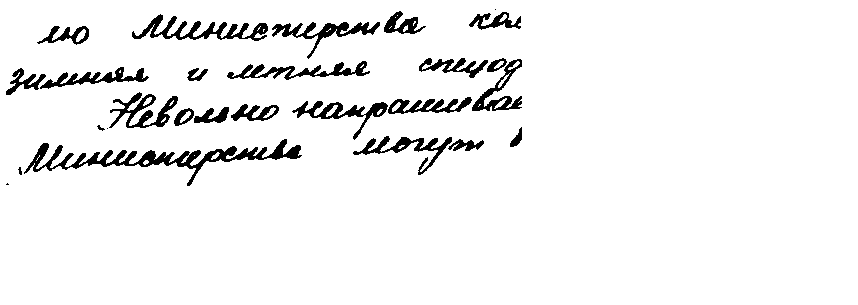 лю Министерства кол
зимняя и летняя спецод
Невольно напрашивае
Министерства могут б